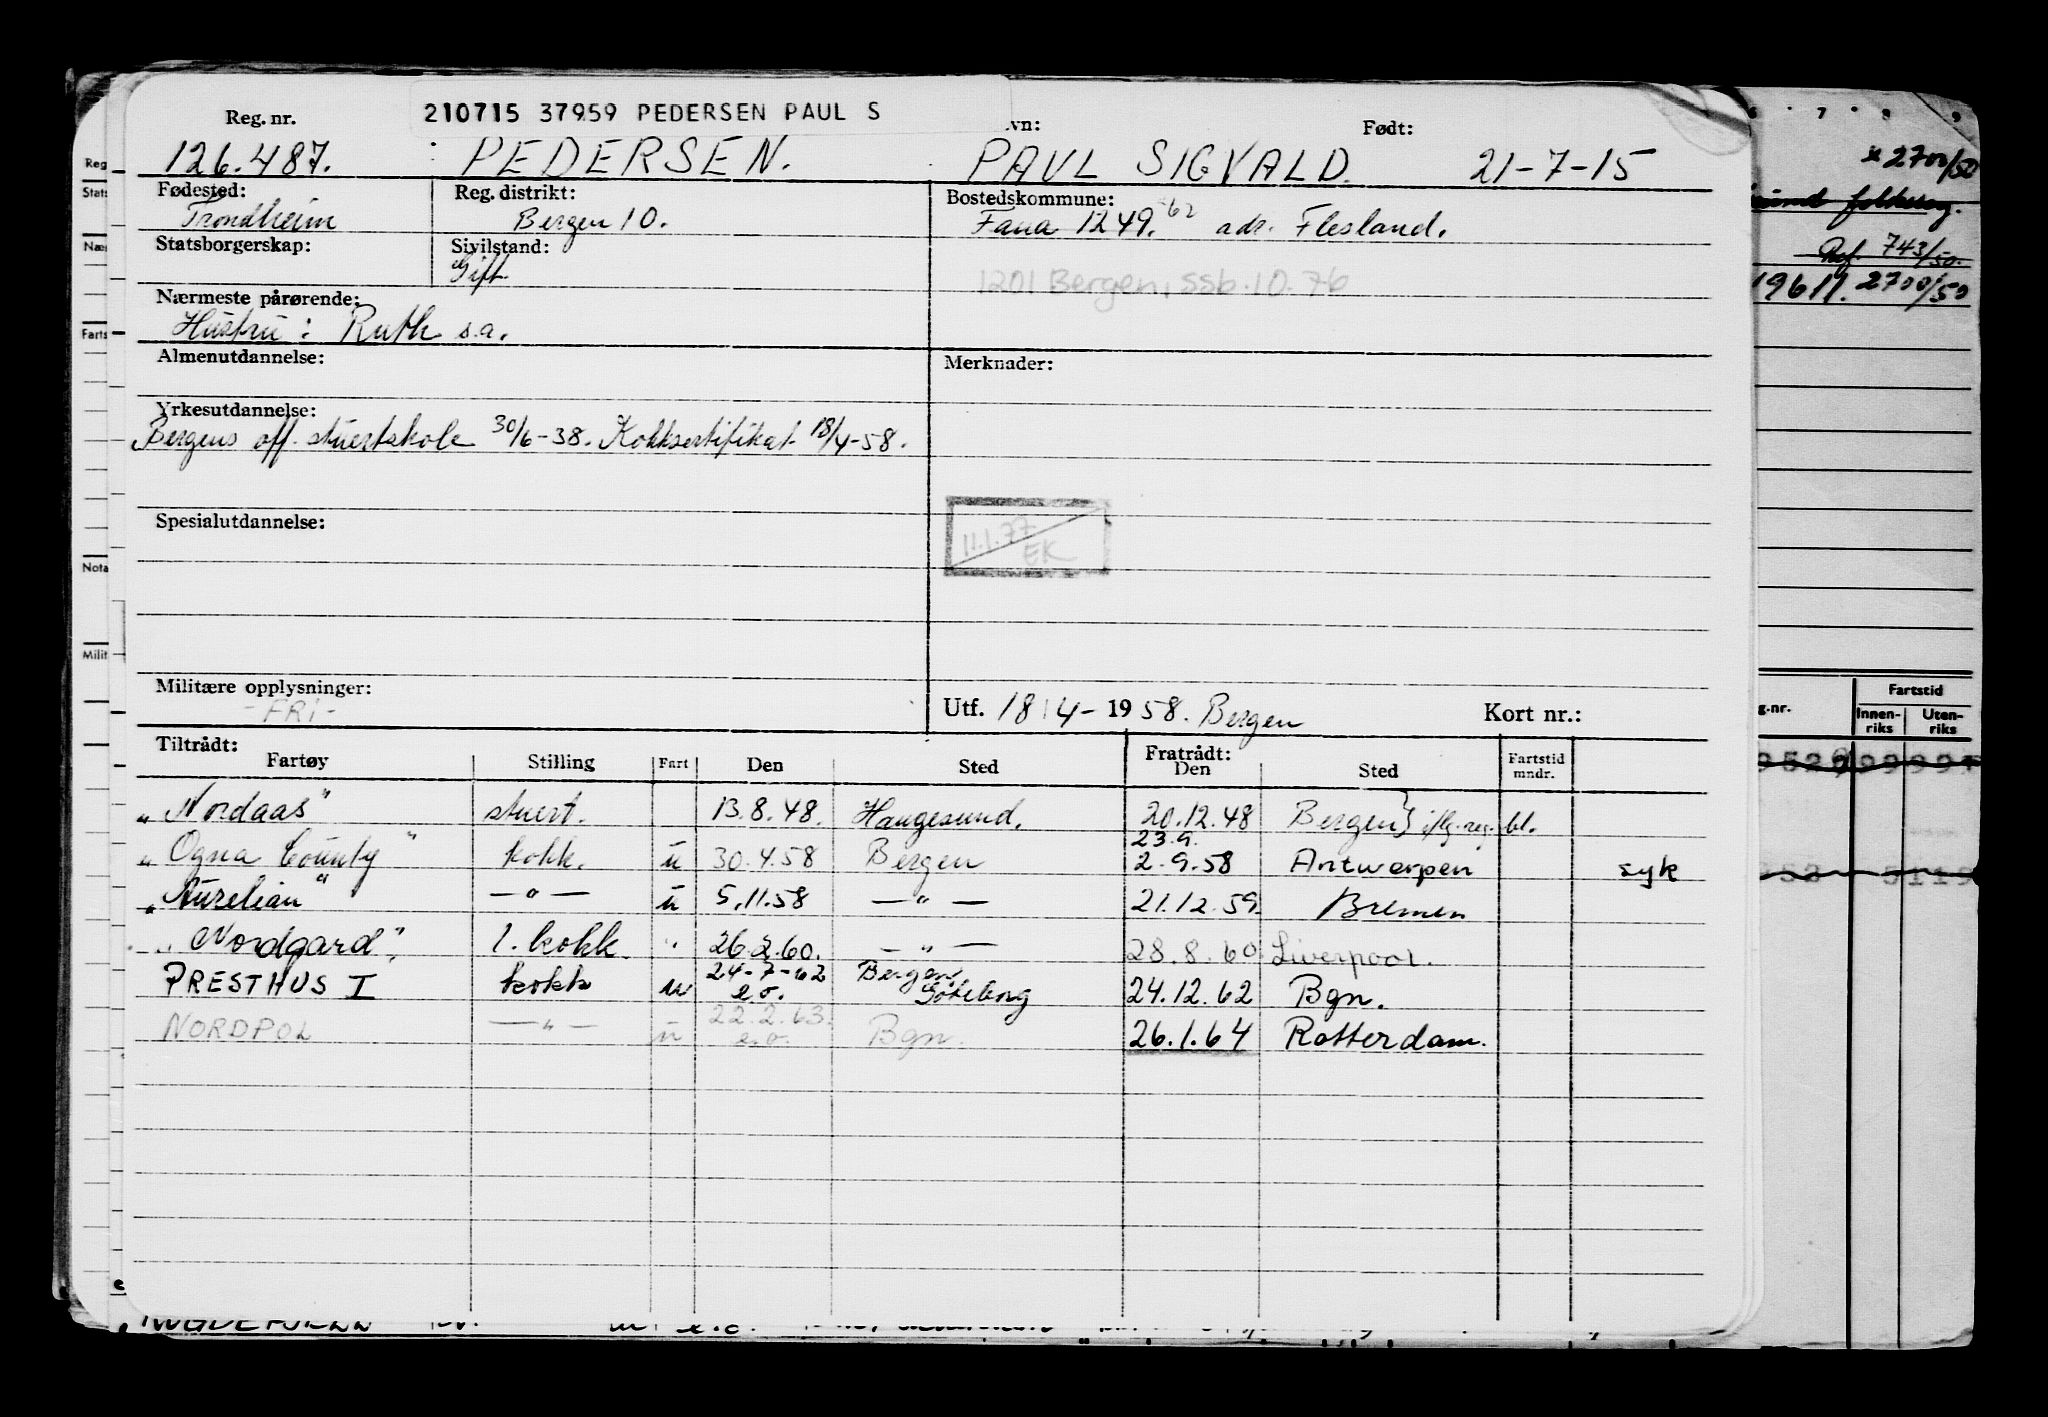 210715 37959 PEDERSEN PAUL S
Reg. nr. vn: Født:
126.487. PEDERSEN. PAUL SIGVALD. 21-7-15
Fødested: Reg. distrikt: Bostedskommune:
Trondheim Bergen 10. Fana 1249. -62 adr. Flesland.
Statsborgerskap: Sivilstand:
Gift 1201 Bergen, ssb. 10.76
Nærmeste pårørende:
Hustru: Ruth s.a.
Almenutdannelse: Merknader:
Yrkesutdannelse:
Bergens off. stuertskole 30/6-38. Kokksertifikat 18/4-58.
Spesialutdannelse:
11.1.77
EK
Militære opplysninger:
-FRI- Utf. 18/4-1958. Bergen Kort nr.:
Tiltrådt: Fratrådt:
Fartøy Stilling Fart Den Sted Den Sted Fartstid mndr.
"Nordaas" stuert. 13.8.48. Haugesund. 20.12.48 Bergen} iflg. reg. bl.
23.9.
"Ogna County" kokk. u 30.4.58 Bergen 2.9.58 Antwerpen syk
"Aurelian" —"— u 5.11.58 —"— 21.12.59. Bremen
"Nordgard". 1. kokk. " 26.2.60. —"— 28.8.60 Liverpool.
PRESTHUS I kokk u 24-7-62 e.o. Bergen, Göteborg 24.12.62 Bgn.
NORDPOL —"— u 22.2.63. e.o. Bgn. 26.1.64 Rotterdam.
Reg
Stats
Næs
Farts
Nota
Milit
6 7 8 9
x 2700/50
Ref. 743/50.
19611. 2700/50
g.nr. Fartstid
Innenriks Utenriks